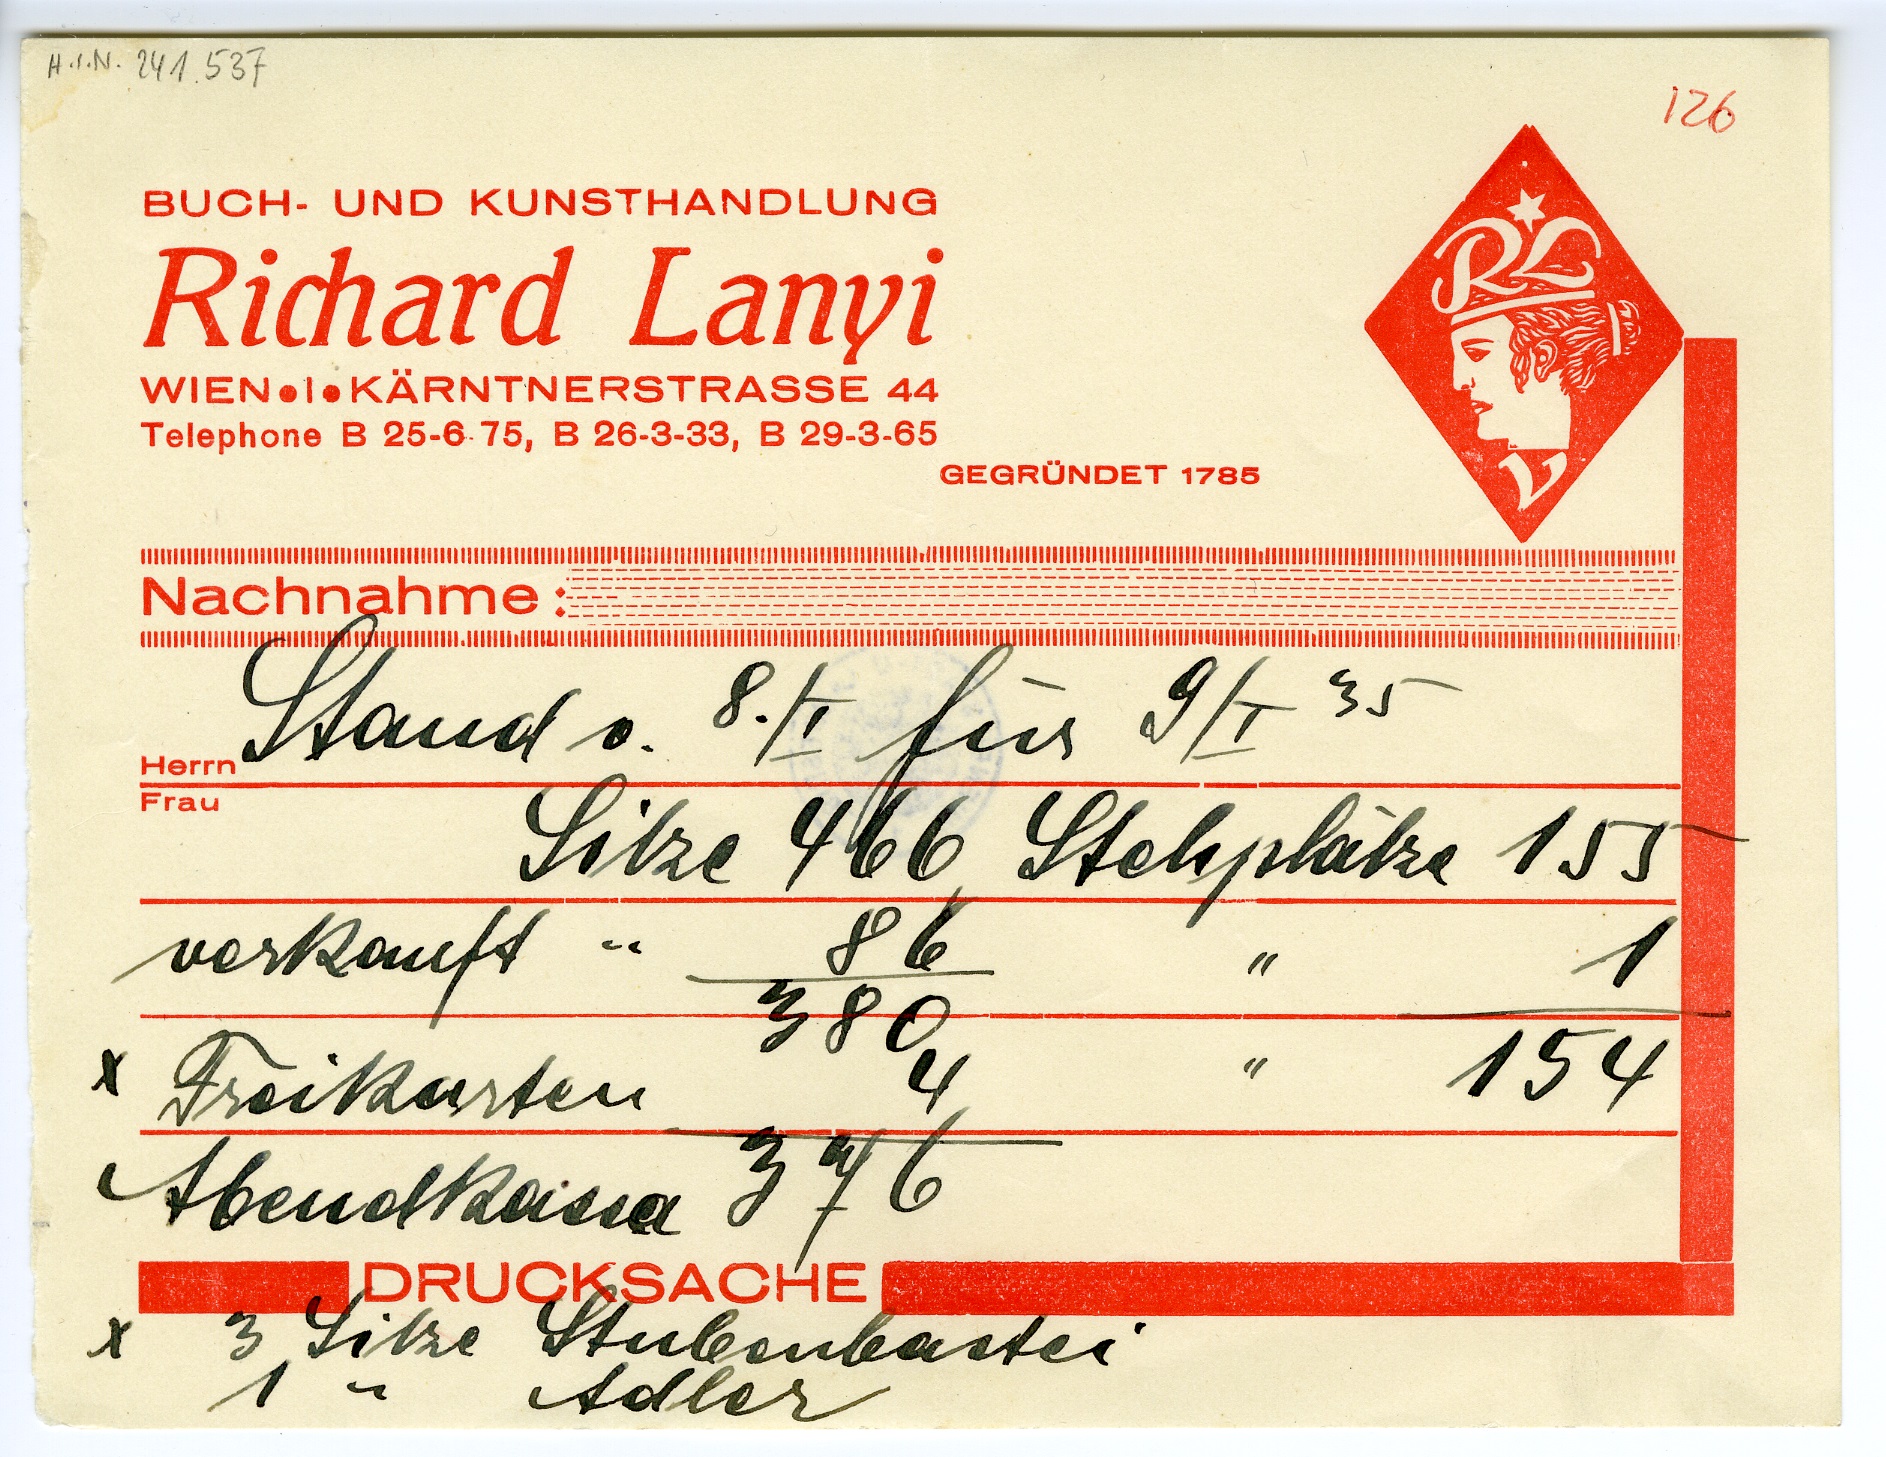 H.I.N. 241.537
126
BUCH- UND KUNSTHANDLUNG
Richard Lanyi
WIEN•I•KÄRNTNERSTRASSE 44
Telephone B 25-6-75, B 26-3-33, B 29-3-65
GEGRÜNDET 1785
RL
V
Nachnahme:
Stand v. 8./I für 9/I 35
Herrn
Frau
Sitze 466 Stehplätze 155
verkauft " 86 " 1
380
x Freikarten 4 " 154
Abendkassa 376
DRUCKSACHE
x 3 Sitze Stubenbastei
1 " Adler